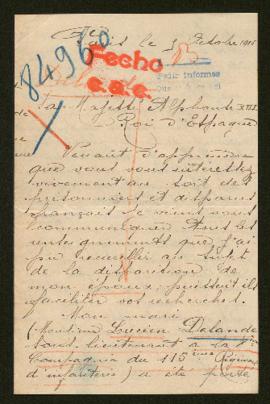 84960
Fecho
c.a.c.
Paris le 3 Octobre 1915
Pedir informes
Sa Majesté Alphonse XIII
Roi d'Espagne
Venant d'apprendre
que vous vous intéressez
vivement au sort des
prisonniers et disparus
français je viens vous
communiquer tous les
renseignements que j'ai
pu recueillir au sujet
de la disparition de
mon époux, puissent-ils
faciliter vos recherches.
Mon mari
(Monsieur Lucien Delande
sous lieutenant à la
Compagnie du 115ème Régiment
d'infanterie) a été porté